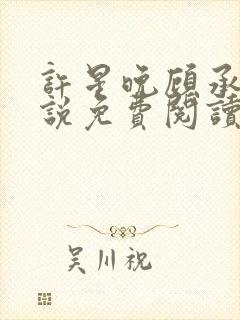 許星晚顧承
說免費閱讀
吴川祝